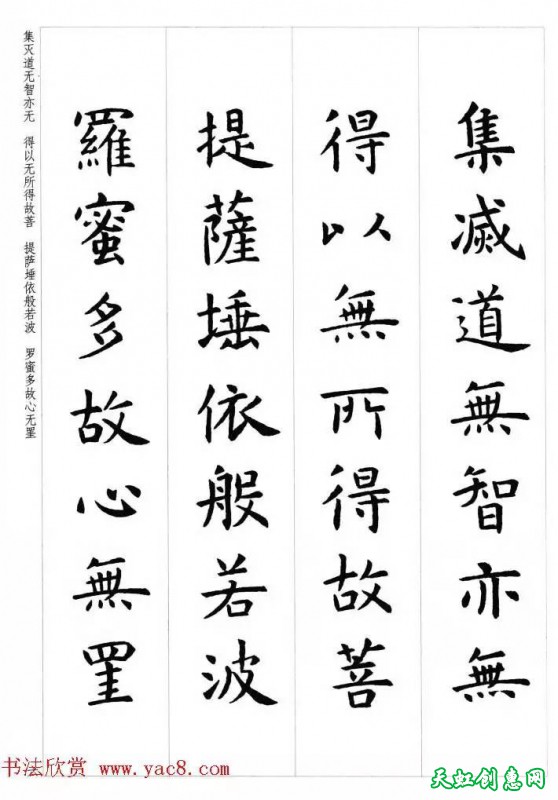 集滅道無智亦無
得以無所得故菩
提薩埵依般若波
羅蜜多故心無罣
集灭道无智亦无 得以无所得故善 提萨埵依般若波 罗蜜多故心无罣
书法欣赏 www.yac8.com
天虹创惠网